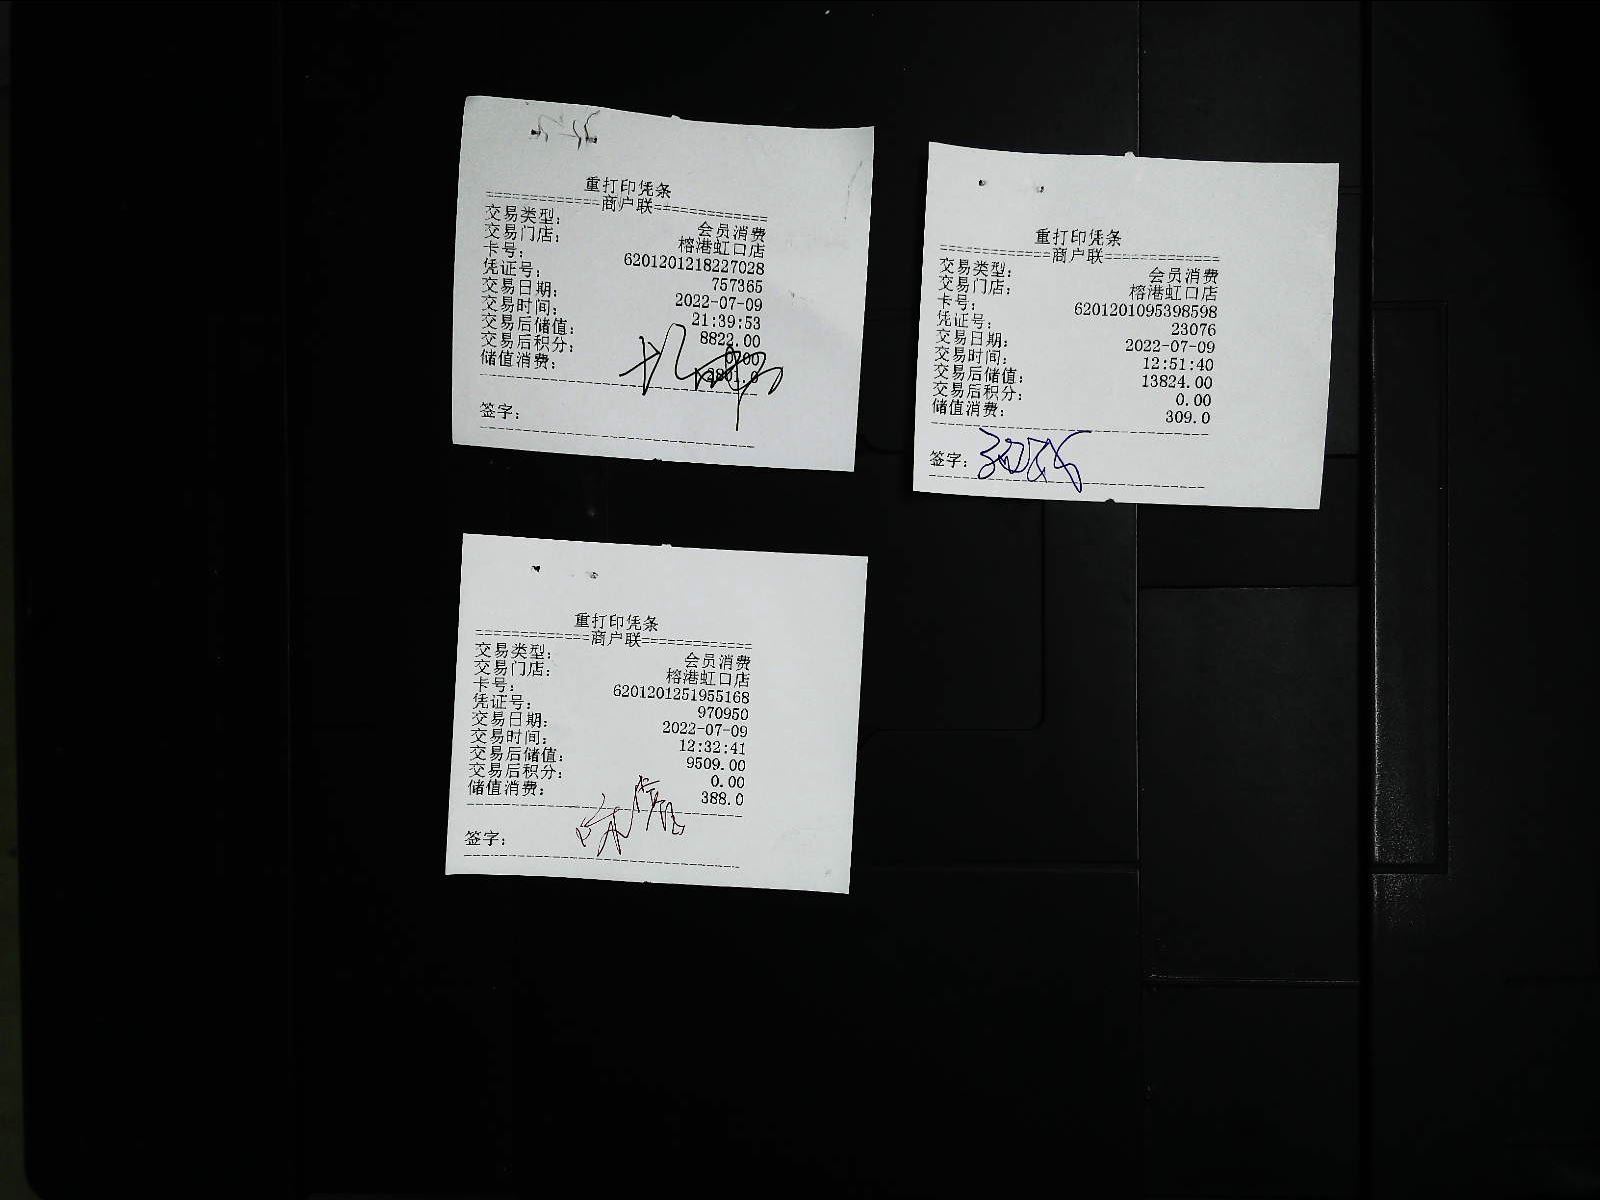 重打印凭条
=============商户联=============
交易类型: 会员消费
交易门店: 榕港虹口店
卡号: 6201201218227028
凭证号: 757365
交易日期: 2022-07-09
交易时间: 21:39:53
交易后储值: 8822.00
交易后积分: 0.00
储值消费:
签字:
重打印凭条
=============商户联=============
交易类型: 会员消费
交易门店: 榕港虹口店
卡号: 6201201095398598
凭证号: 23076
交易日期: 2022-07-09
交易时间: 12:51:40
交易后储值: 13824.00
交易后积分: 0.00
储值消费: 309.0
签字:
重打印凭条
=============商户联=============
交易类型: 会员消费
交易门店: 榕港虹口店
卡号: 6201201251955168
凭证号: 970950
交易日期: 2022-07-09
交易时间: 12:32:41
交易后储值: 9509.00
交易后积分: 0.00
储值消费: 388.0
签字: